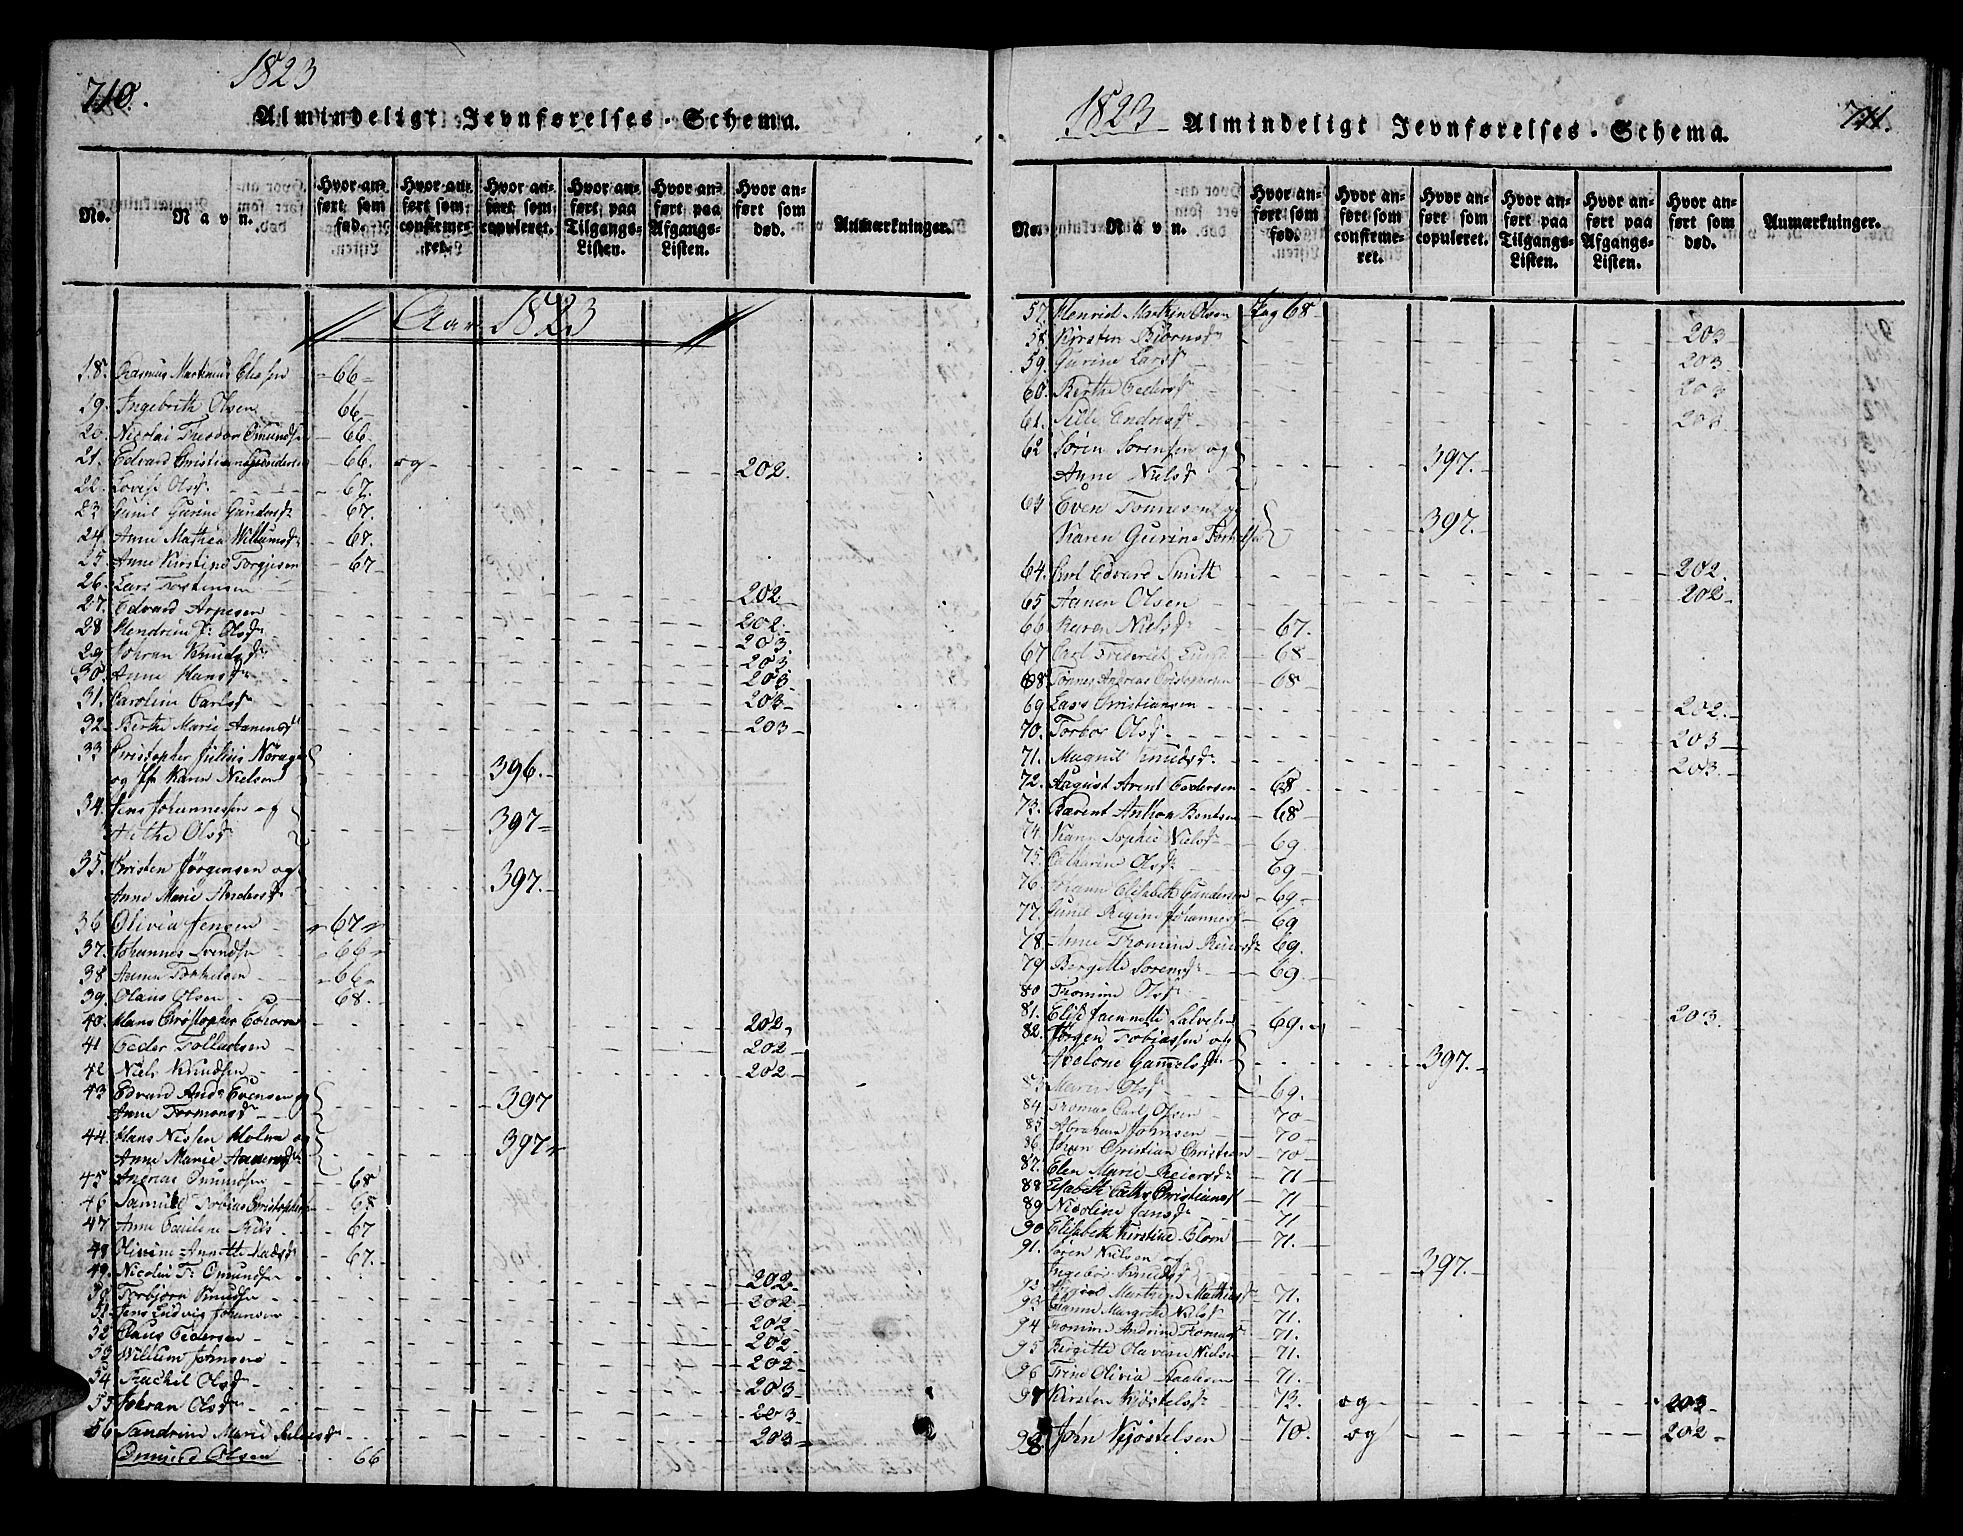 710.
1823
Almindeligt Jevnførelses-Schema.
No.
Navn.
Hvor anført som fød.
Hvor anført som confirmeret.
Hvor anført som copuleret.
Hvor anført paa Tilgangs-Listen.
Hvor anført paa Afgangs-Listen.
Hvor anført som død.
Anmærkninger.
Aar 1823
18. Rasmus Martinius - 66 -
19. Ingebrith Olsen - 66 -
20. Nicolai Theodor Omunds - 66
21. Edvard Christian Gundersen - 66. og - 202.
22. Lovise Olsd. - 67.
23 Gunil Gurine Gundersd. - 67.
24. Anne Mathea Willumsd. - 67.
25. Anne Kirstine Torgjusen - 67 -
26. Lars Torstensen - 202
27. Edvard - 202 -
28 Olsd. - 203.
29 Johran Knudsd. - 203
30. Anne Hansd. - 203
31. Caroline Carlsd. - 203 -
32 - Berthe Marie Aanensd. 203
33 Christopher Julius
og Karen Nielsen - 396. -
34. Jens Johannessen og
Olsd. - 397 -
35. Christen Jørgensen og
Anne Marie Andersd. - 397. -
36 Olivia Jensen - 67
37. Johannes Svendsen - 66 -
38 Torkelsen - 66 -
39. Olaus Olsen - 68. -
40. Hans Christopher - 202 -
41 Peder Tolladsen - 202 -
42 Niels Knudsen - 202 -
43 Edvard And. Evensen og
Anne Tormonsd. - 397
44. Hans Nissen Holm og
Anne Marie - 397
45 Andreas Omundsen - 68
46 Samuel Tobias Christophersen - 68
47 Anne Pauline Nils - 67
48 Olivine Annette - 67.
49. Nicolai T: Omundsen - 202
50 Torbjørn Knudsen - 202
51 Jens Ludvig Johansen - 202
52 Claus Pedersen - 202
53 Willum Johnsen - 202
54 Rachel Olsd. - 203
55 Johran Olsd. - 203 -
56 Sandrine Marie - 203 -
Omund Olsen 66
1823
Almindeligt Jevnførelses-Schema.
711.
No.
Navn.
Hvor anført som fød.
Hvor anført som confirmeret.
Hvor anført som copuleret.
Hvor anført paa Tilgangs-Listen.
Hvor anført paa Afgangs-Listen.
Hvor anført som død.
Anmærkninger.
57. Henrich Martin Olsen Pag 68 -
58. Kirsten Bjørnsd. - 203
59. Gurine Larsd. - 203 -
60. Berthe Pedersd. - 203
61. Sille Endresd. - 203
62 Søren Sørensen og
Anne Nielsd. - 397. -
63 Even Tønnesen og
Karen Gurine - 397.
64. Carl Edvard Smith - 202.
65 Aanen Olsen - 202 -
66 Karen Nielsd. - 67.
67 Carl Frederik - 68 -
68. Tønnes Andreas - 68 -
69 Lars Christiansen - 202. -
70. Torbor Olsd. - 203 -
71. Magnil Knudsd. - 203 -
72. August Arent Pedersen - 68
73. Barent Anthon Bentsen - 68
74 Karen Sophie Nielsd. - 69.
75. Catharine Olsd. - 69 -
76. Johanne Elisabeth Gundersen - 69 -
77. Gunil Regine Johannesd. - 69
78. Anne Thomine Reiersd. 69.
79 Bergitte Sørensd. - 69. -
80 Thomine Olsd. - 203.
81. Elise Jaennette Salvesen 69.
82. Jørgen Tobiassen og
Abelone Gammelsd. - 397. -
83 Maren Olsd. - 69.
84 Thomas Carl Olsen - 70 -
85 Abraham Johnsen - 70 -
86 Johan Christian Christian - 70 -
87. Elen Marie Reiersd. - 71
88 Elisabeth Cath. Christiansd. - 71
89 Nicoline Jansd. - 71
90 Elisabeth Kirstine Blom - 71.
91. Søren Nielsen og
Ingebor Knudsd. - 397 -
92. Martine Mathiasd. - 71.
93 Hanne Margrethe Nielsd. - 71.
94 Thomine Andrine Thomasd. - 71.
95 Birgitte Olavine Nielsen - 71.
96 Trine Olivia - 71.
97 Kirsten Kjøstelsd. - 72. og - 203 -
98. Jørn Kjøstelsen - 70. og - 202 -